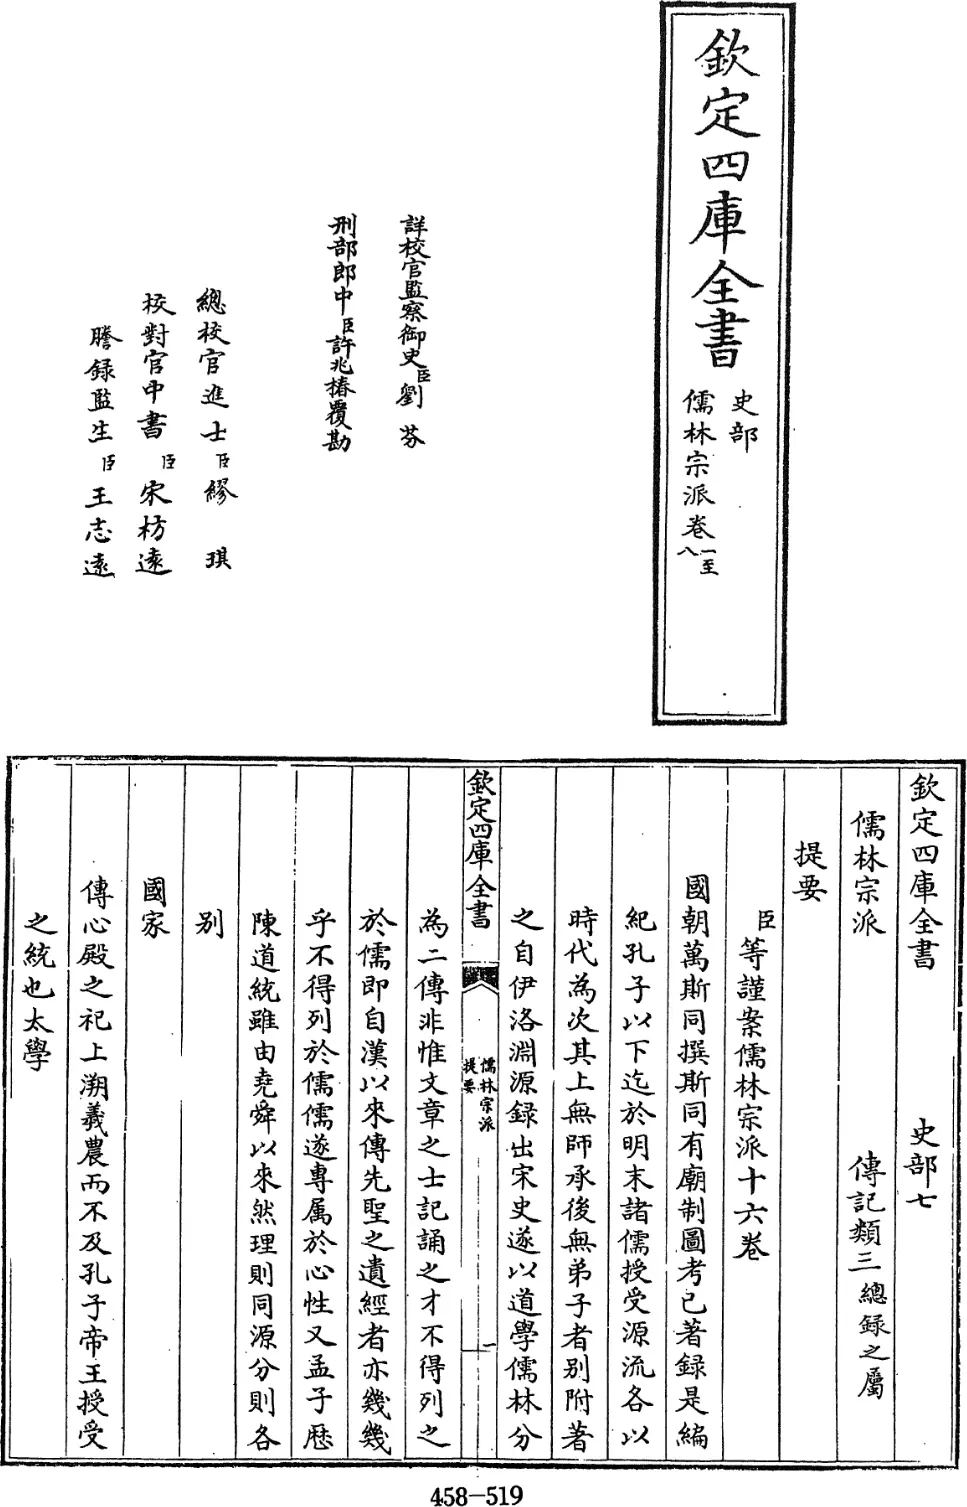 欽定四庫全書
史部
儒林宗派卷一至八
詳校官監察御史臣劉芬
刑部郎中臣許兆椿覆勘
總校官進士臣繆琪
校對官中書臣宋枋遠
謄錄監生臣王志遠
欽定四庫全書　史部七
儒林宗派　傳記類三總錄之屬
提要
臣等謹案儒林宗派十六卷
國朝萬斯同撰斯同有廟制圖考已著錄是編
紀孔子以下迄於明末諸儒授受源流各以
時代為次其上無師承後無弟子者別附著
之自伊洛淵源録出宋史遂以道學儒林分
欽定四庫全書　儒林宗派提要　一
為二傳非惟文章之士記誦之才不得列之
於儒即自漢以來傳先聖之遺經者亦幾幾
乎不得列於儒儒遂專属於心性又孟子歴
陳道統雖由堯舜以來然理則同源分則各
别
國家
傳心殿之祀上溯羲農而不及孔子帝王授受
之統也太學
458-519